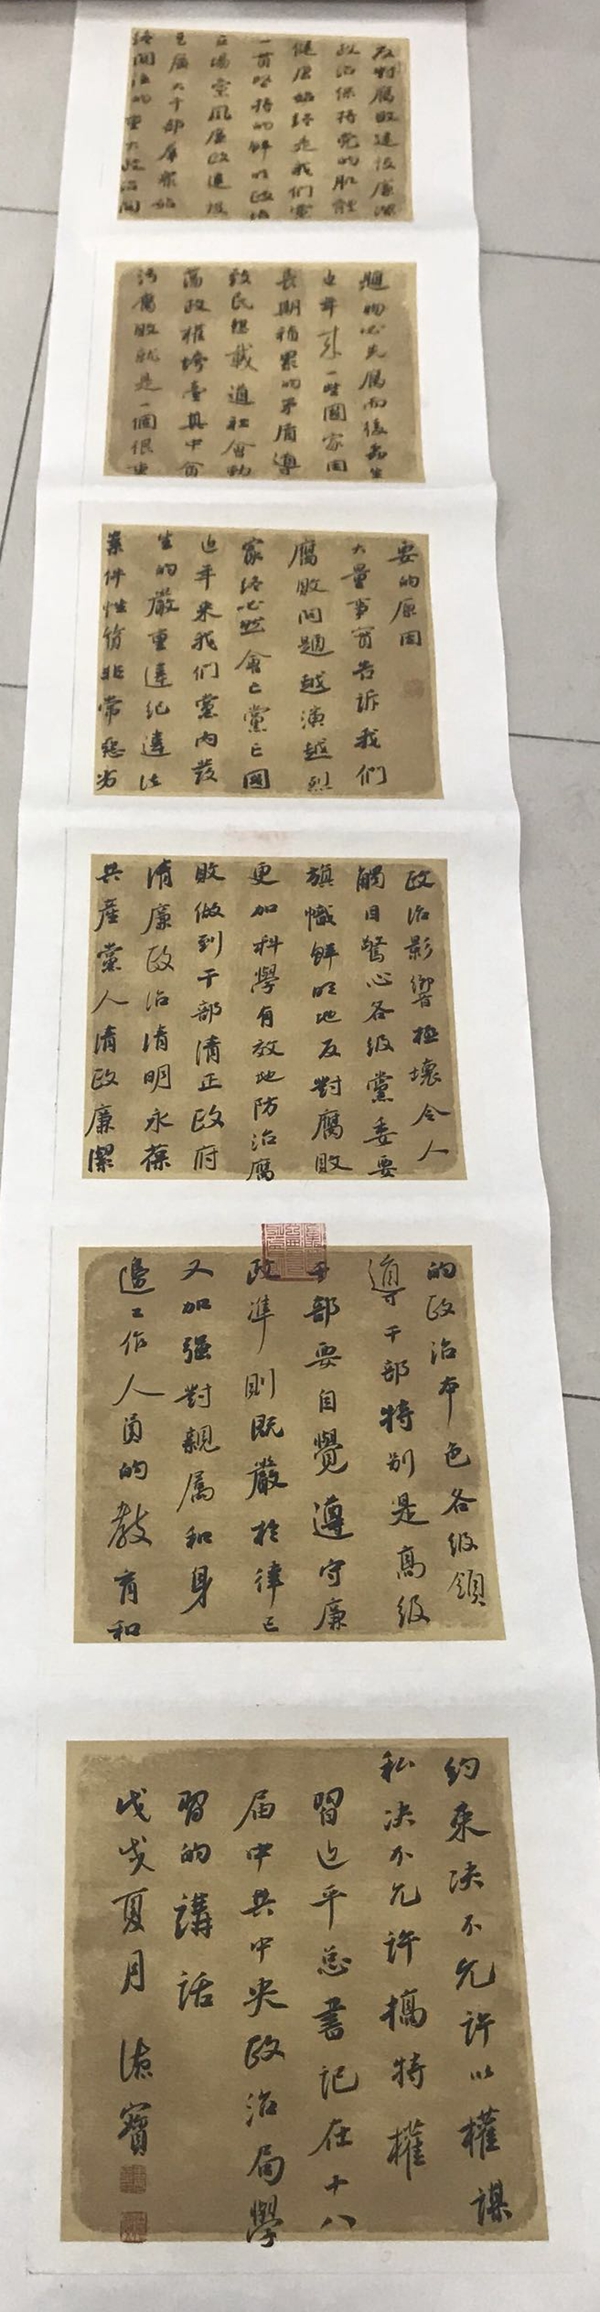 反對腐敗建設廉潔
政治保持党的肌體
健康始終是我們黨
一貫堅持的鮮明政治
立場黨風廉政建設
是廣大干部群眾始
終關注的重大政治問
題物必先腐而後蟲生
近年来一些國家因
長期積累的矛盾導
致民怨載道社會動
蕩政權垮臺其中貪
污腐敗就是一個很重
要的原因
大量事實告訴我們
腐敗問題越演越烈
最終必然會亡黨亡國
近年来我们黨内發
生的嚴重違纪違法
案件性質非常惡劣
政治影響極壞令人
觸目驚心各级黨委要
旗幟鲜明地反對腐敗
更加科學有效地防治腐
敗做到干部清正政府
清廉政治清明永葆
共産黨人清政廉潔
的政治本色各级領
導干部特别是高级
干部要自覺遵守廉
政準則既嚴於律己
又加强對親属和身
邊工作人員的教育和
约束决不允許以權謀
私决不允許搞特權
習近平总書記在十八
届中共中央政治局學
習的講話
戊戌夏月 德寶